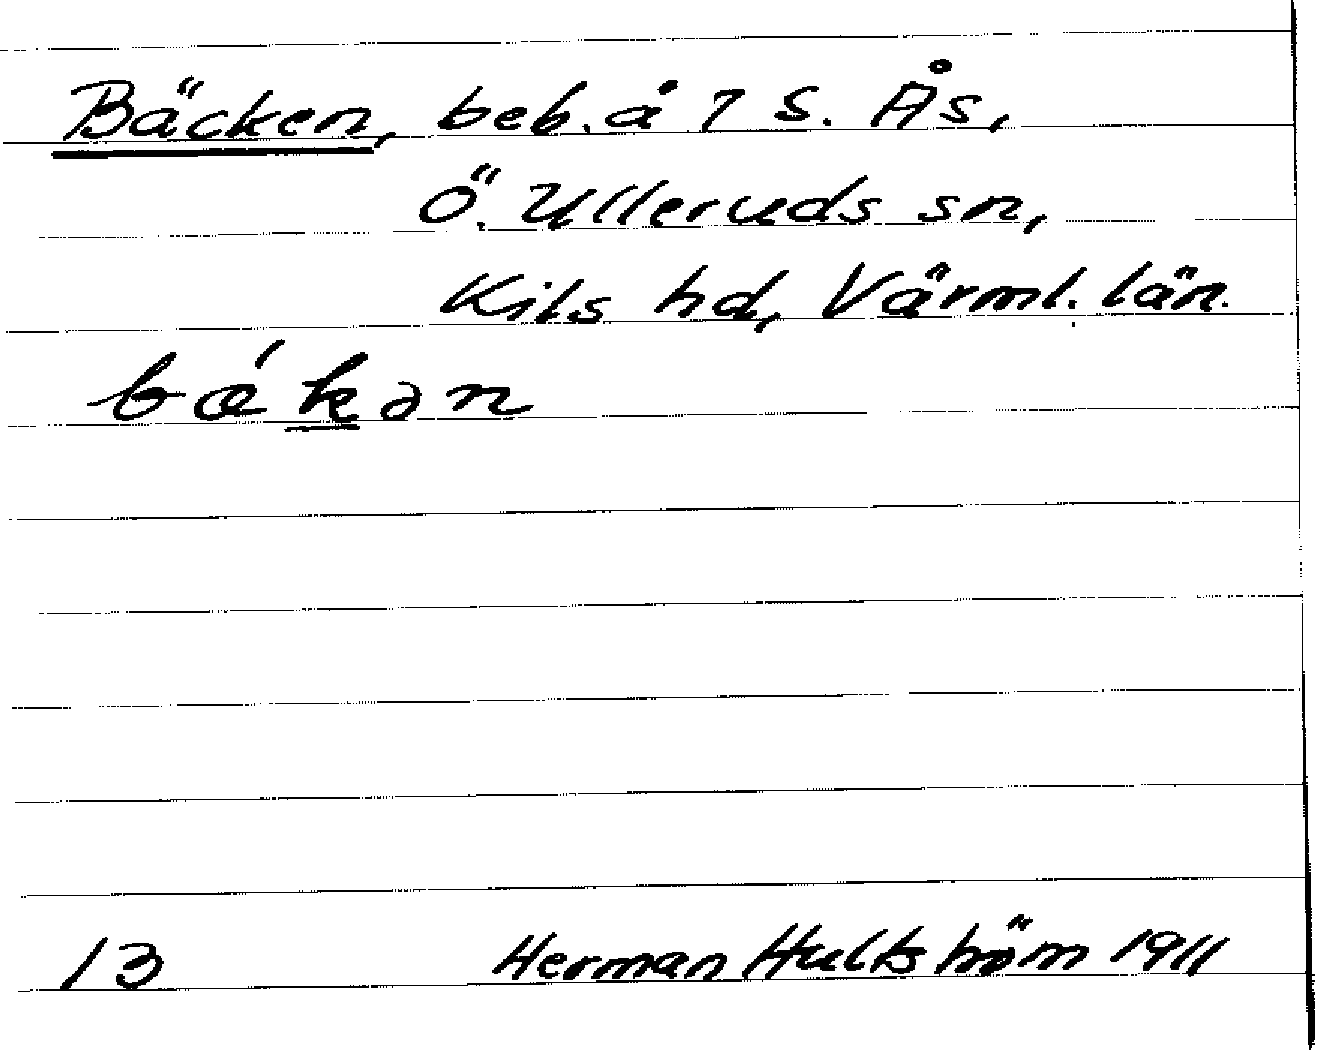 Bäcken, beb. å 7 S. Ås,
Ö. Ulleruds sn,
Kils hd, Värml. län.
bǽkən
13 Herman Hultström 1911